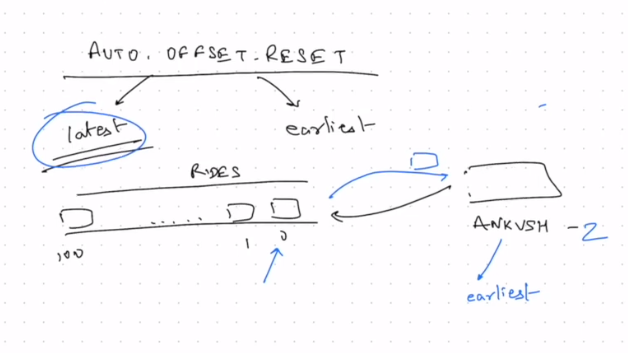 AUTO.OFFSET-RESET
latest
earliest
RIDES
100 ...... 1 0
ANKUSH - 2
earliest